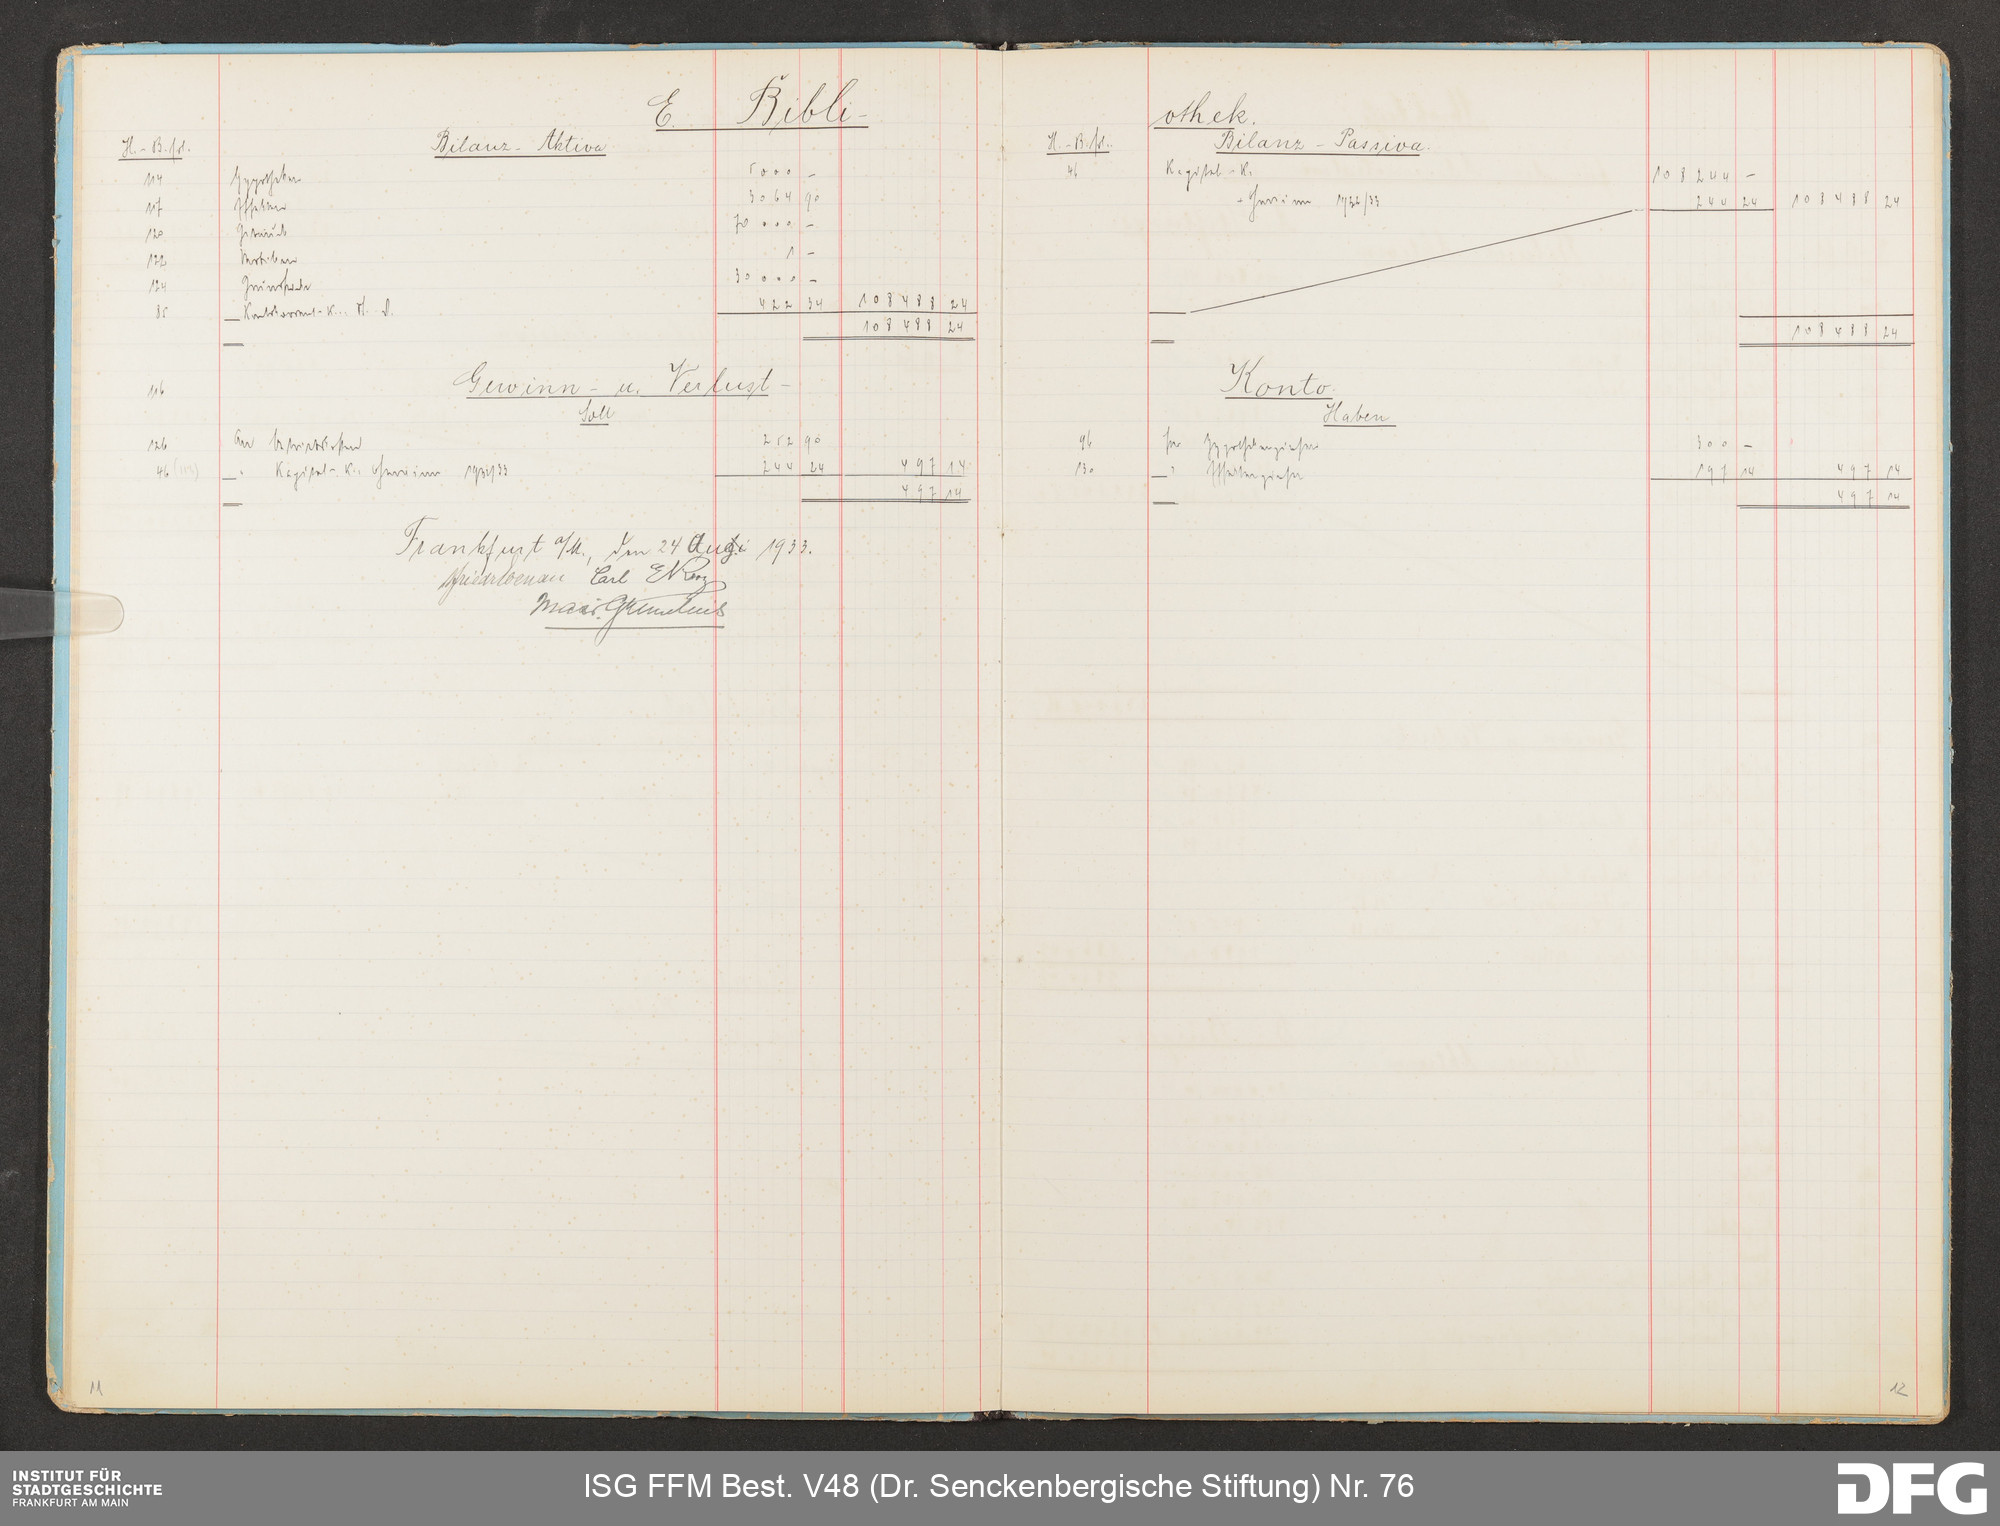 E. Bibli-
H.-B. fol.
Bilanz - Aktiva
114 Hypotheken 5000 –
117 Effekten 3064 90
120 Gebäude 70000 –
122 Mobilien 1 –
124 30000 –
85 Kontokorrent-K. 422 34 108488 24
108488 24
116 Gewinn- u. Verlust-
Soll
126 An Betriebskosten 252 90
46 (113) " Kapital-K. 1932/33 244 24 497 14
497 14
Frankfurt a/M., den 24 1933.
Carl
11
othek.
H.-B. fol.
Bilanz - Passiva.
46 Kapital-K. 108244 –
1932/33 244 24 108488 24
108488 24
Konto.
Haben
96 Per Hypothekenzinsen 300 –
130 " Effektenzinsen 197 14 497 14
497 14
12
INSTITUT FÜR
STADTGESCHICHTE
FRANKFURT AM MAIN
ISG FFM Best. V48 (Dr. Senckenbergische Stiftung) Nr. 76
DFG